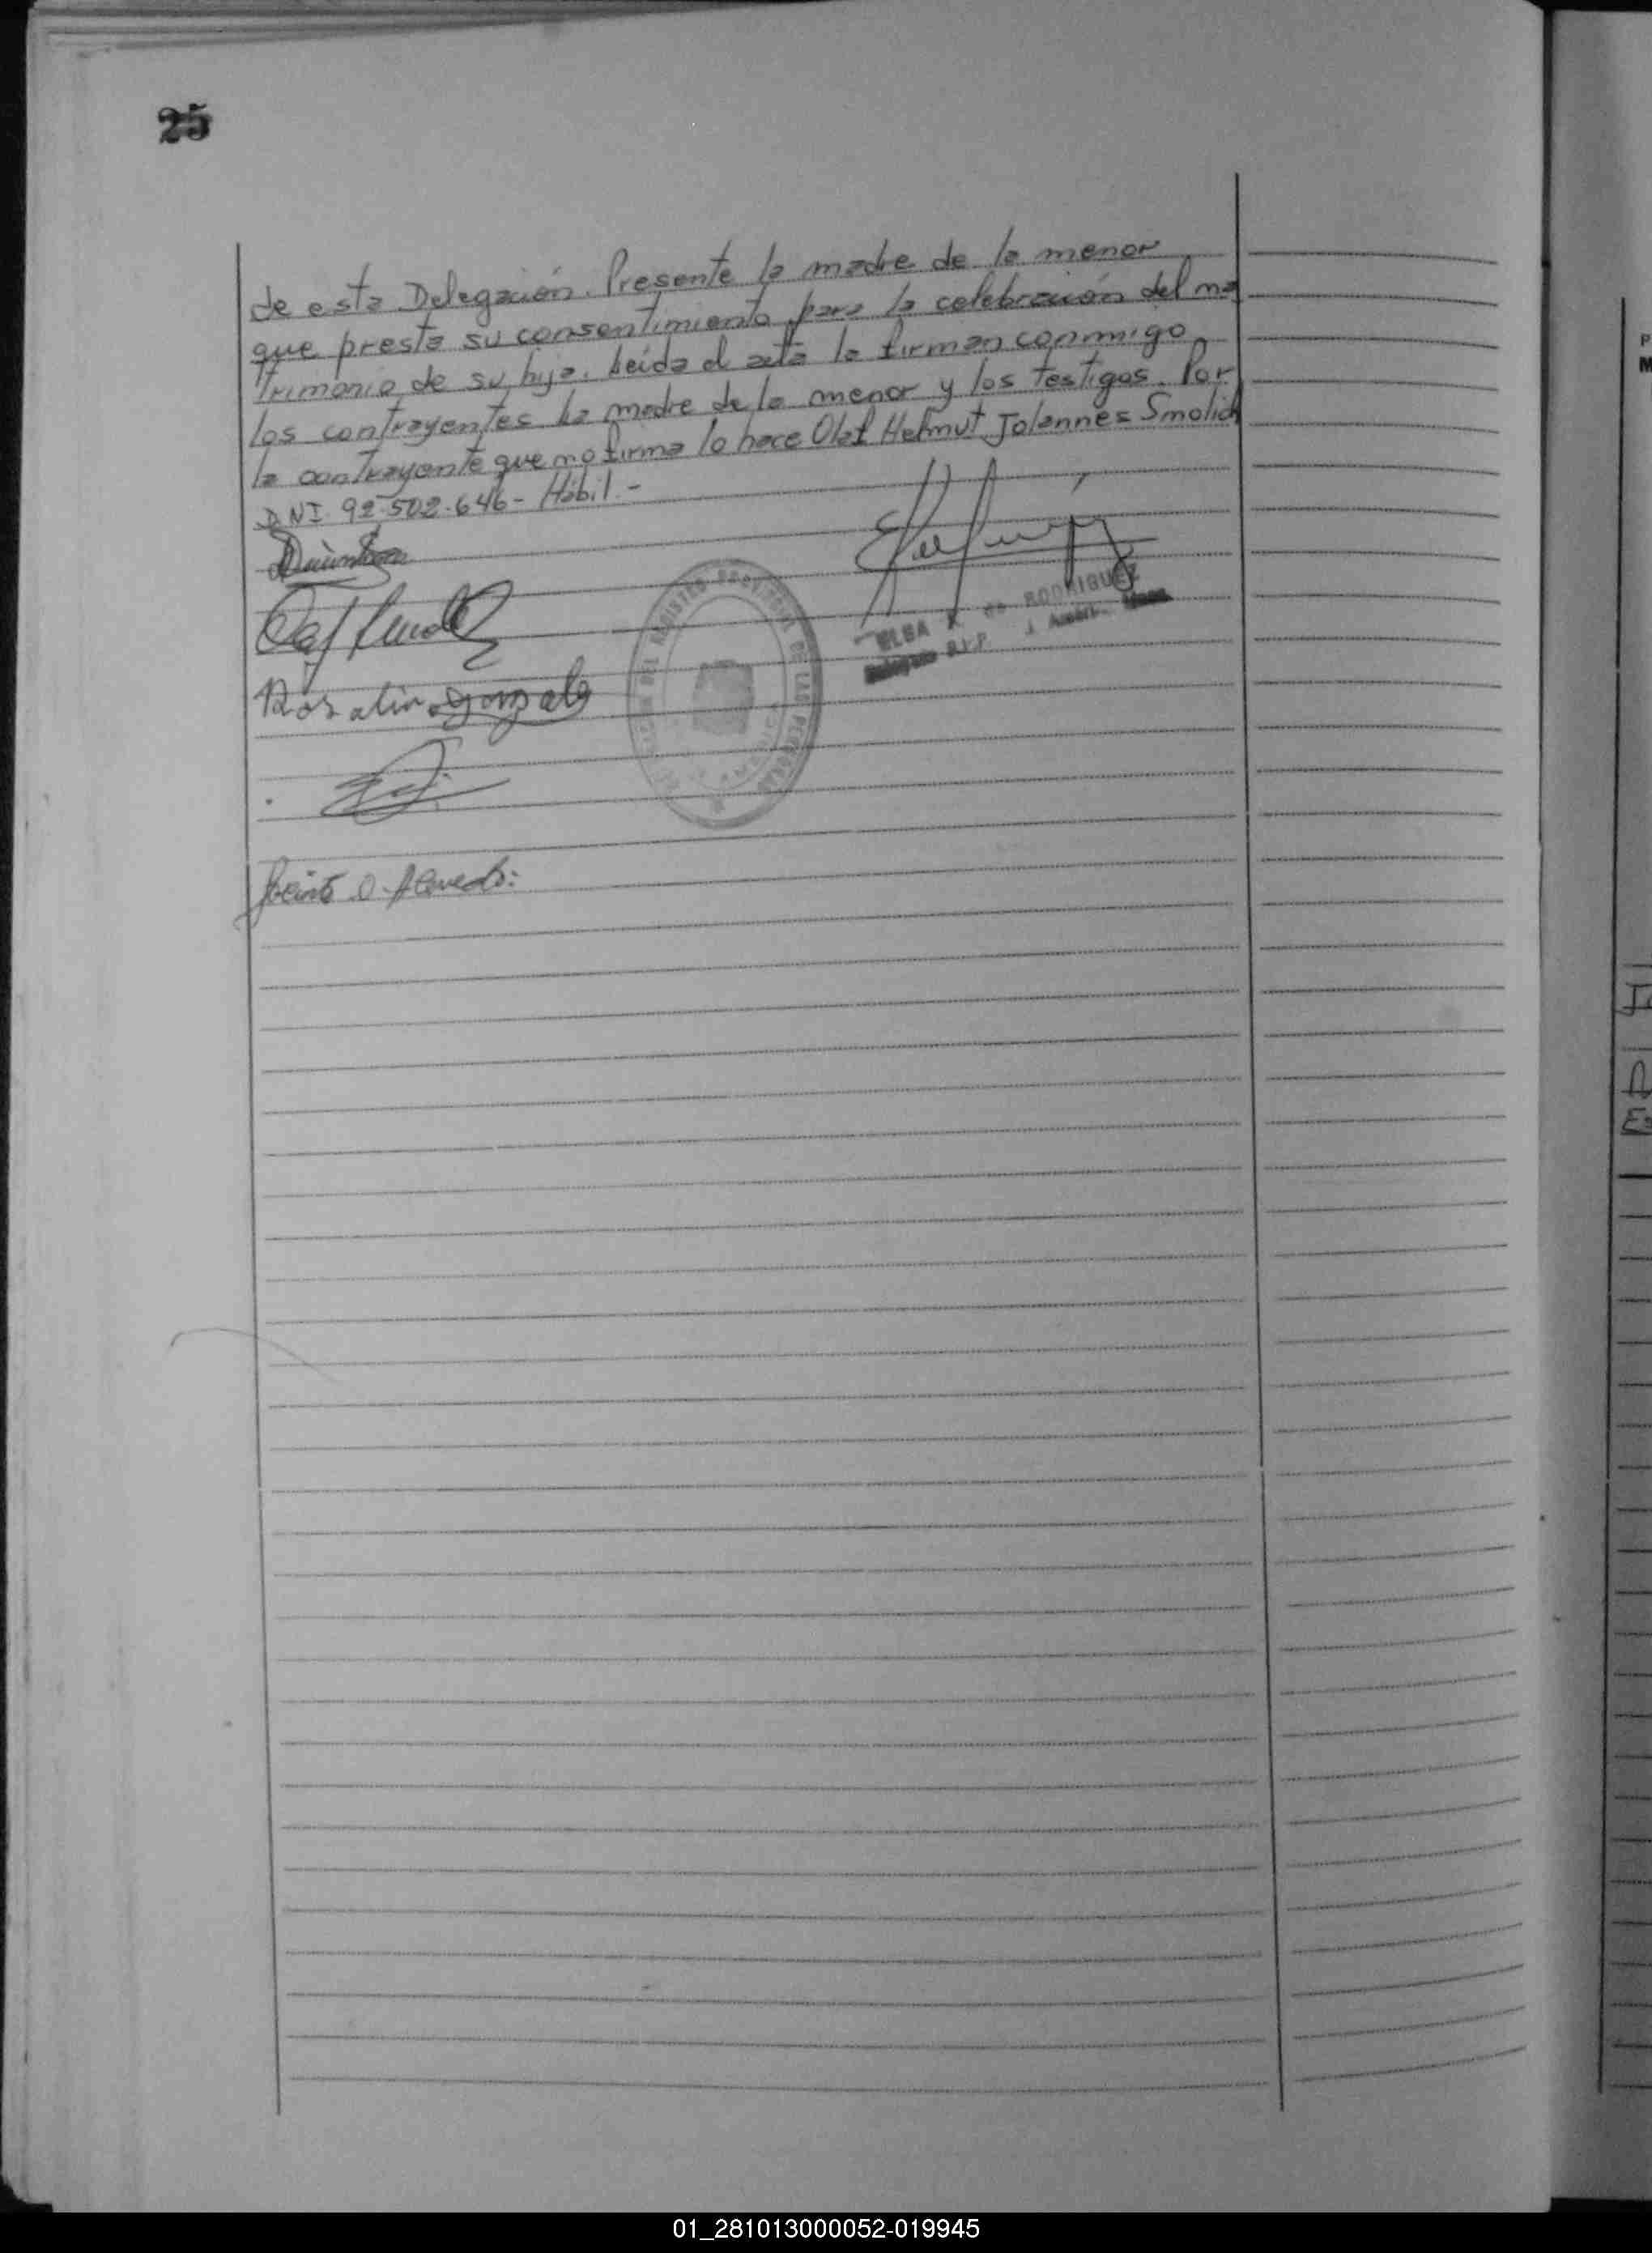 25
de esta Delegación. Presente la madre de la menor
que presta su consentimiento para la celebración del ma
trimonio de su hija. Leída el acta la firman conmigo
los contrayentes la madre de la menor y los testigos. Por
la contrayente que no firma lo hace Olaf Helmut Johannes Smolich
DNI 92.502.646- Hábil.-
ELBA de RODRIGUEZ
Rosalina Gonzale
REGISTRO DE LAS PERSONAS
Jacinto O. Acevedo:
01_281013000052-019945